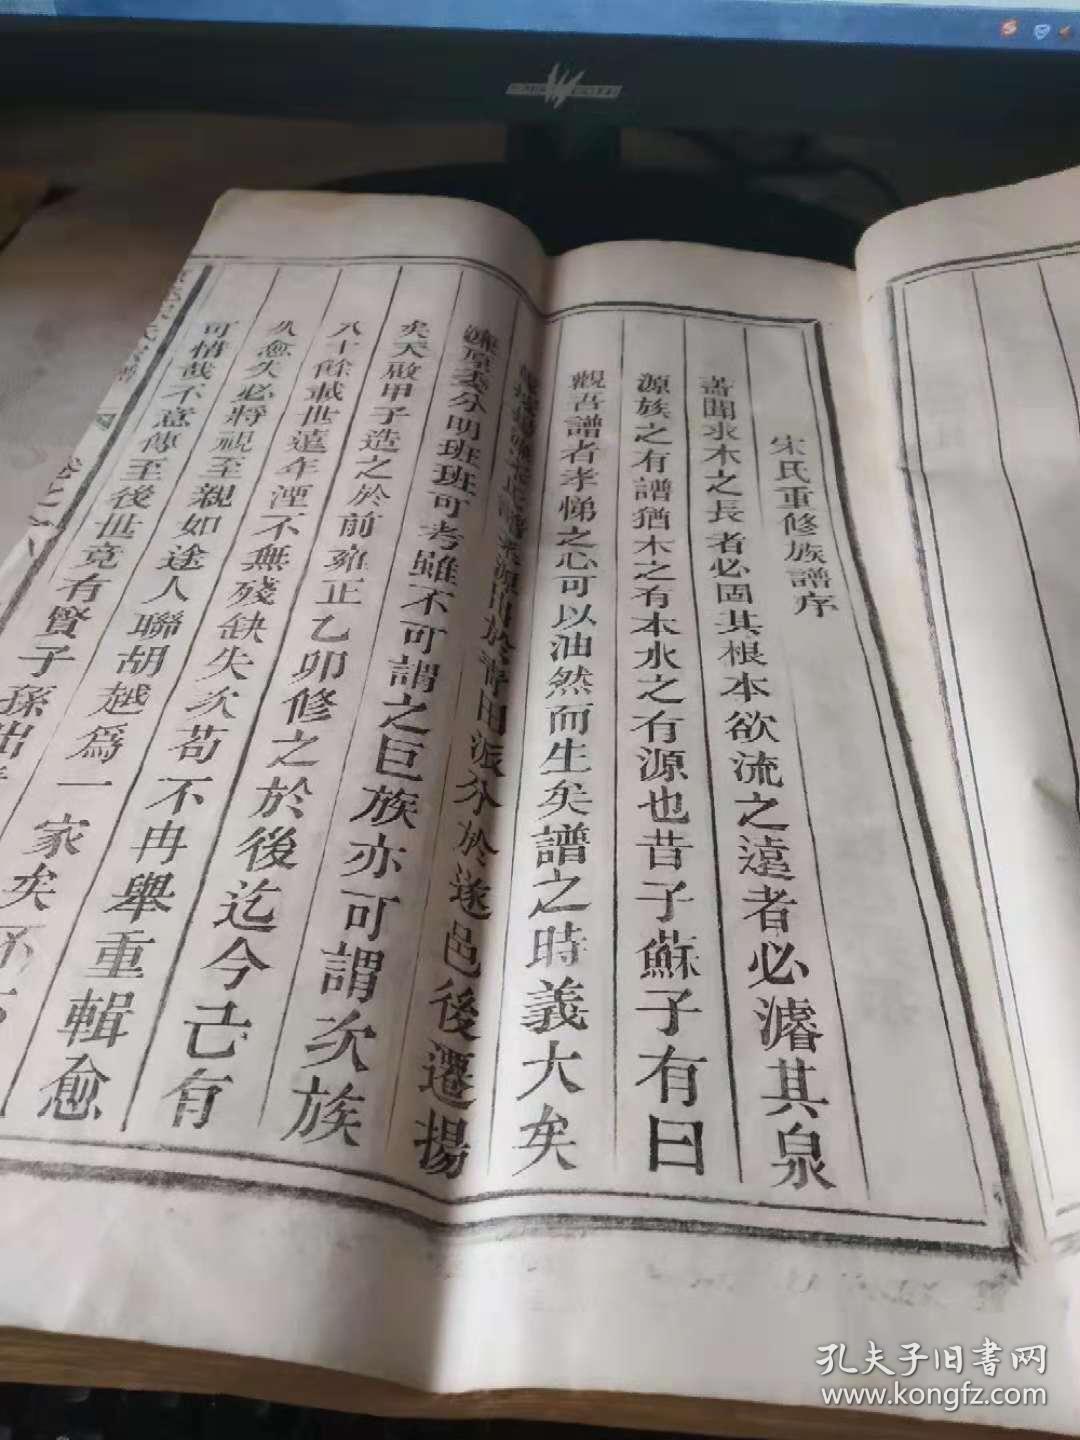 宋氏重修族譜序
蓋聞水木之長者必固其根本欲流之遠者必濬其泉
源族之有譜猶木之有本水之有源也昔子蘇子有曰
觀吾譜者孝悌之心可以油然而生矣譜之時義大矣
源出於青田派分於遂邑後遷揚
源委分明班班可考雖不可謂之巨族亦可謂次族
矣天啟甲子造之於前雍正乙卯修之於後迄今己有
八十餘載世遠年湮不無殘缺失次苟不冉舉重輯愈
久愈失必將視至親如途人聯胡越爲一家矣
可惜哉不意傳至後世竟有賢子孫出
卷之
孔夫子旧書网
www.kongfz.com